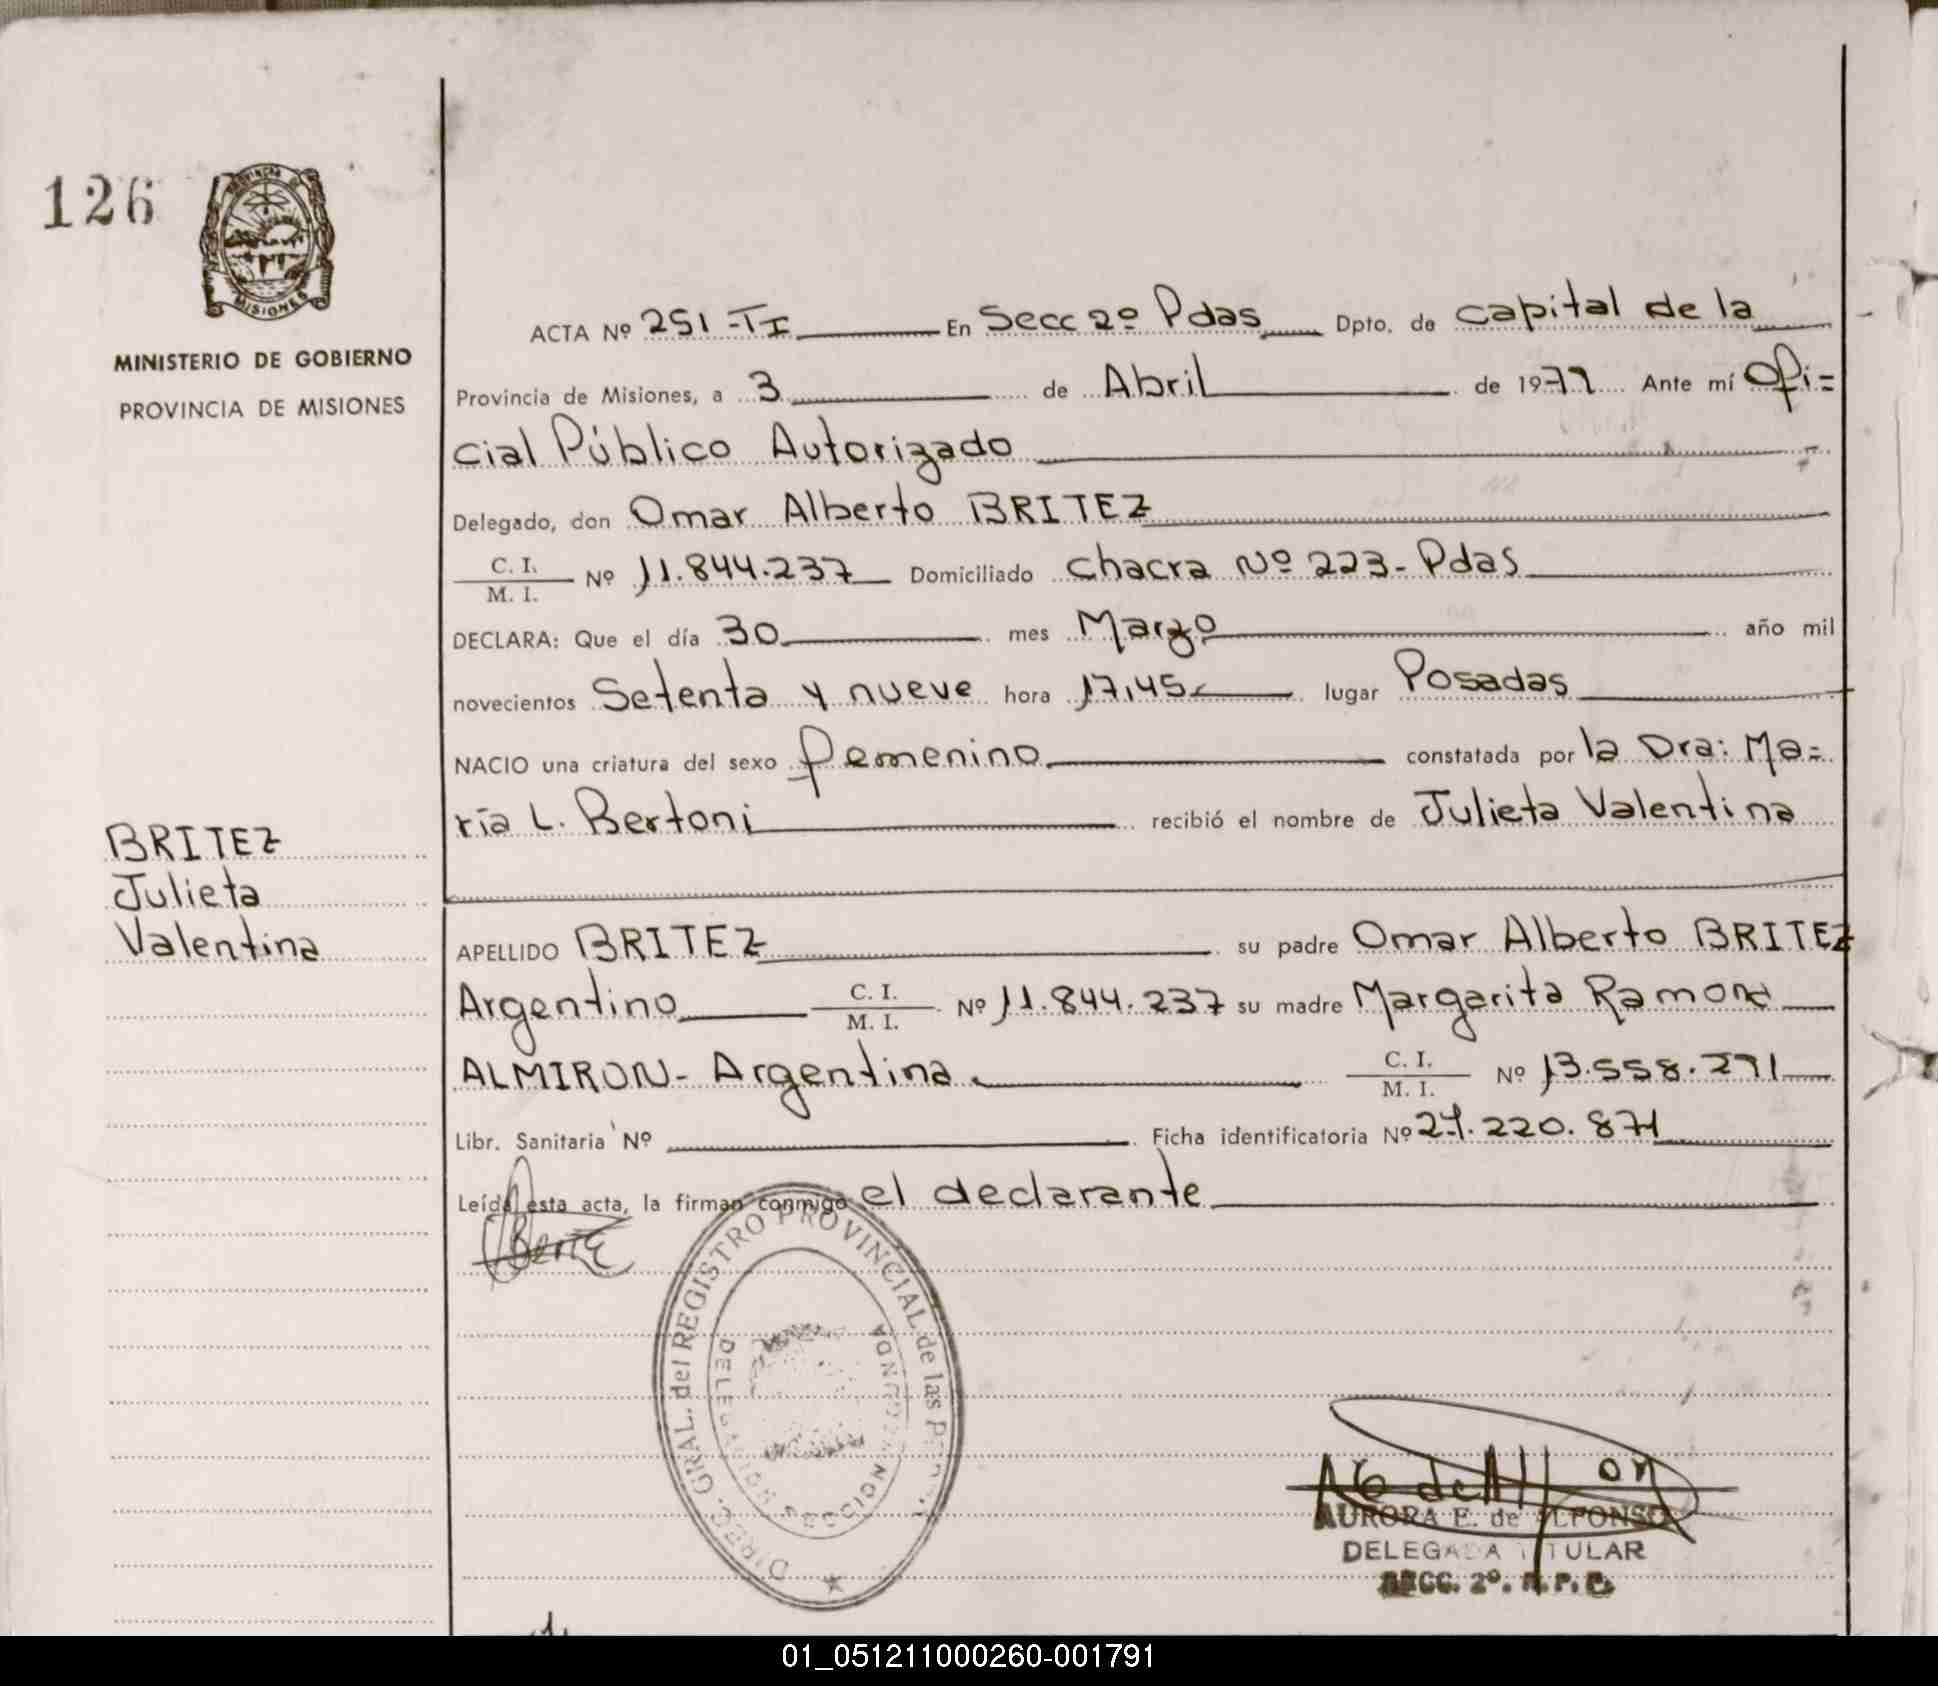 126
PROVINCIA DE
MISIONES
MINISTERIO DE GOBIERNO
PROVINCIA DE MISIONES
BRITEZ
Julieta
Valentina
ACTA Nº 251-TI En Secc 2º Pdas Dpto. de capital de la
Provincia de Misiones, a 3 de Abril de 1979 Ante mí Ofi=
cial Público Autorizado
Delegado, don Omar Alberto BRITEZ
C. I.
M. I. Nº 11.844.237 Domiciliado chacra Nº 223- Pdas
DECLARA: Que el día 30 mes Marzo año mil
novecientos Setenta y nueve hora 17,45 lugar Posadas
NACIO una criatura del sexo femenino constatada por la Dra: Ma=
ría L. Bertoni recibió el nombre de Julieta Valentina
APELLIDO BRITEZ su padre Omar Alberto BRITEZ
Argentino C. I.
M. I. Nº 11.844.237 su madre Margarita Ramona
ALMIRON- Argentina C. I.
M. I. Nº 13.558.271
Libr. Sanitaria Nº Ficha identificatoria Nº 27.220.871
Leída esta acta, la firman conmigo el declarante
DIREC. GRAL. del REGISTRO PROVINCIAL de las
SEGUNDA
AURORA E. de ALFONSO
DELEGADA TITULAR
SECC. 2º. R.P.P.
01_051211000260-001791